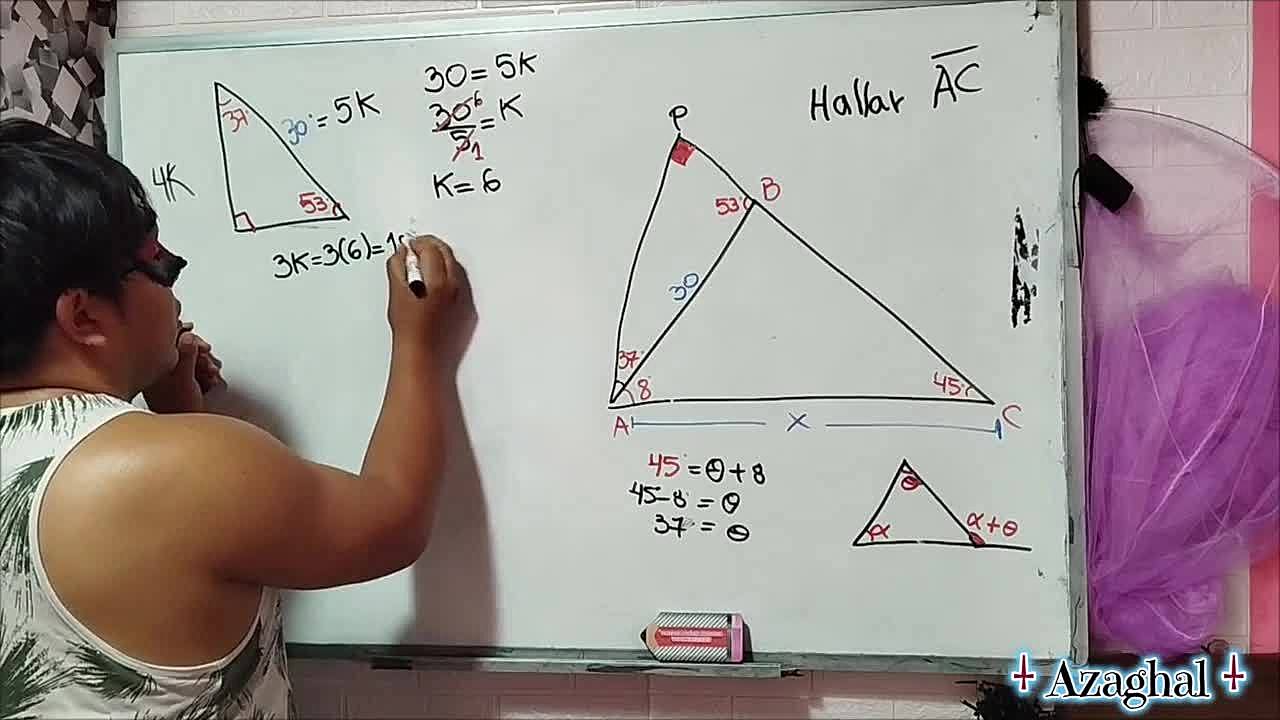 37°
30° = 5K
4K
53
3K=3(6)=1
30 = 5K
30 6 = K
5 1
K = 6
Hallar AC
P
B
53
30
37
8°
45°
A
x
C
45° = θ + 8
45 - 8 = θ
37 = θ
θ
α
α + θ
Azaghal